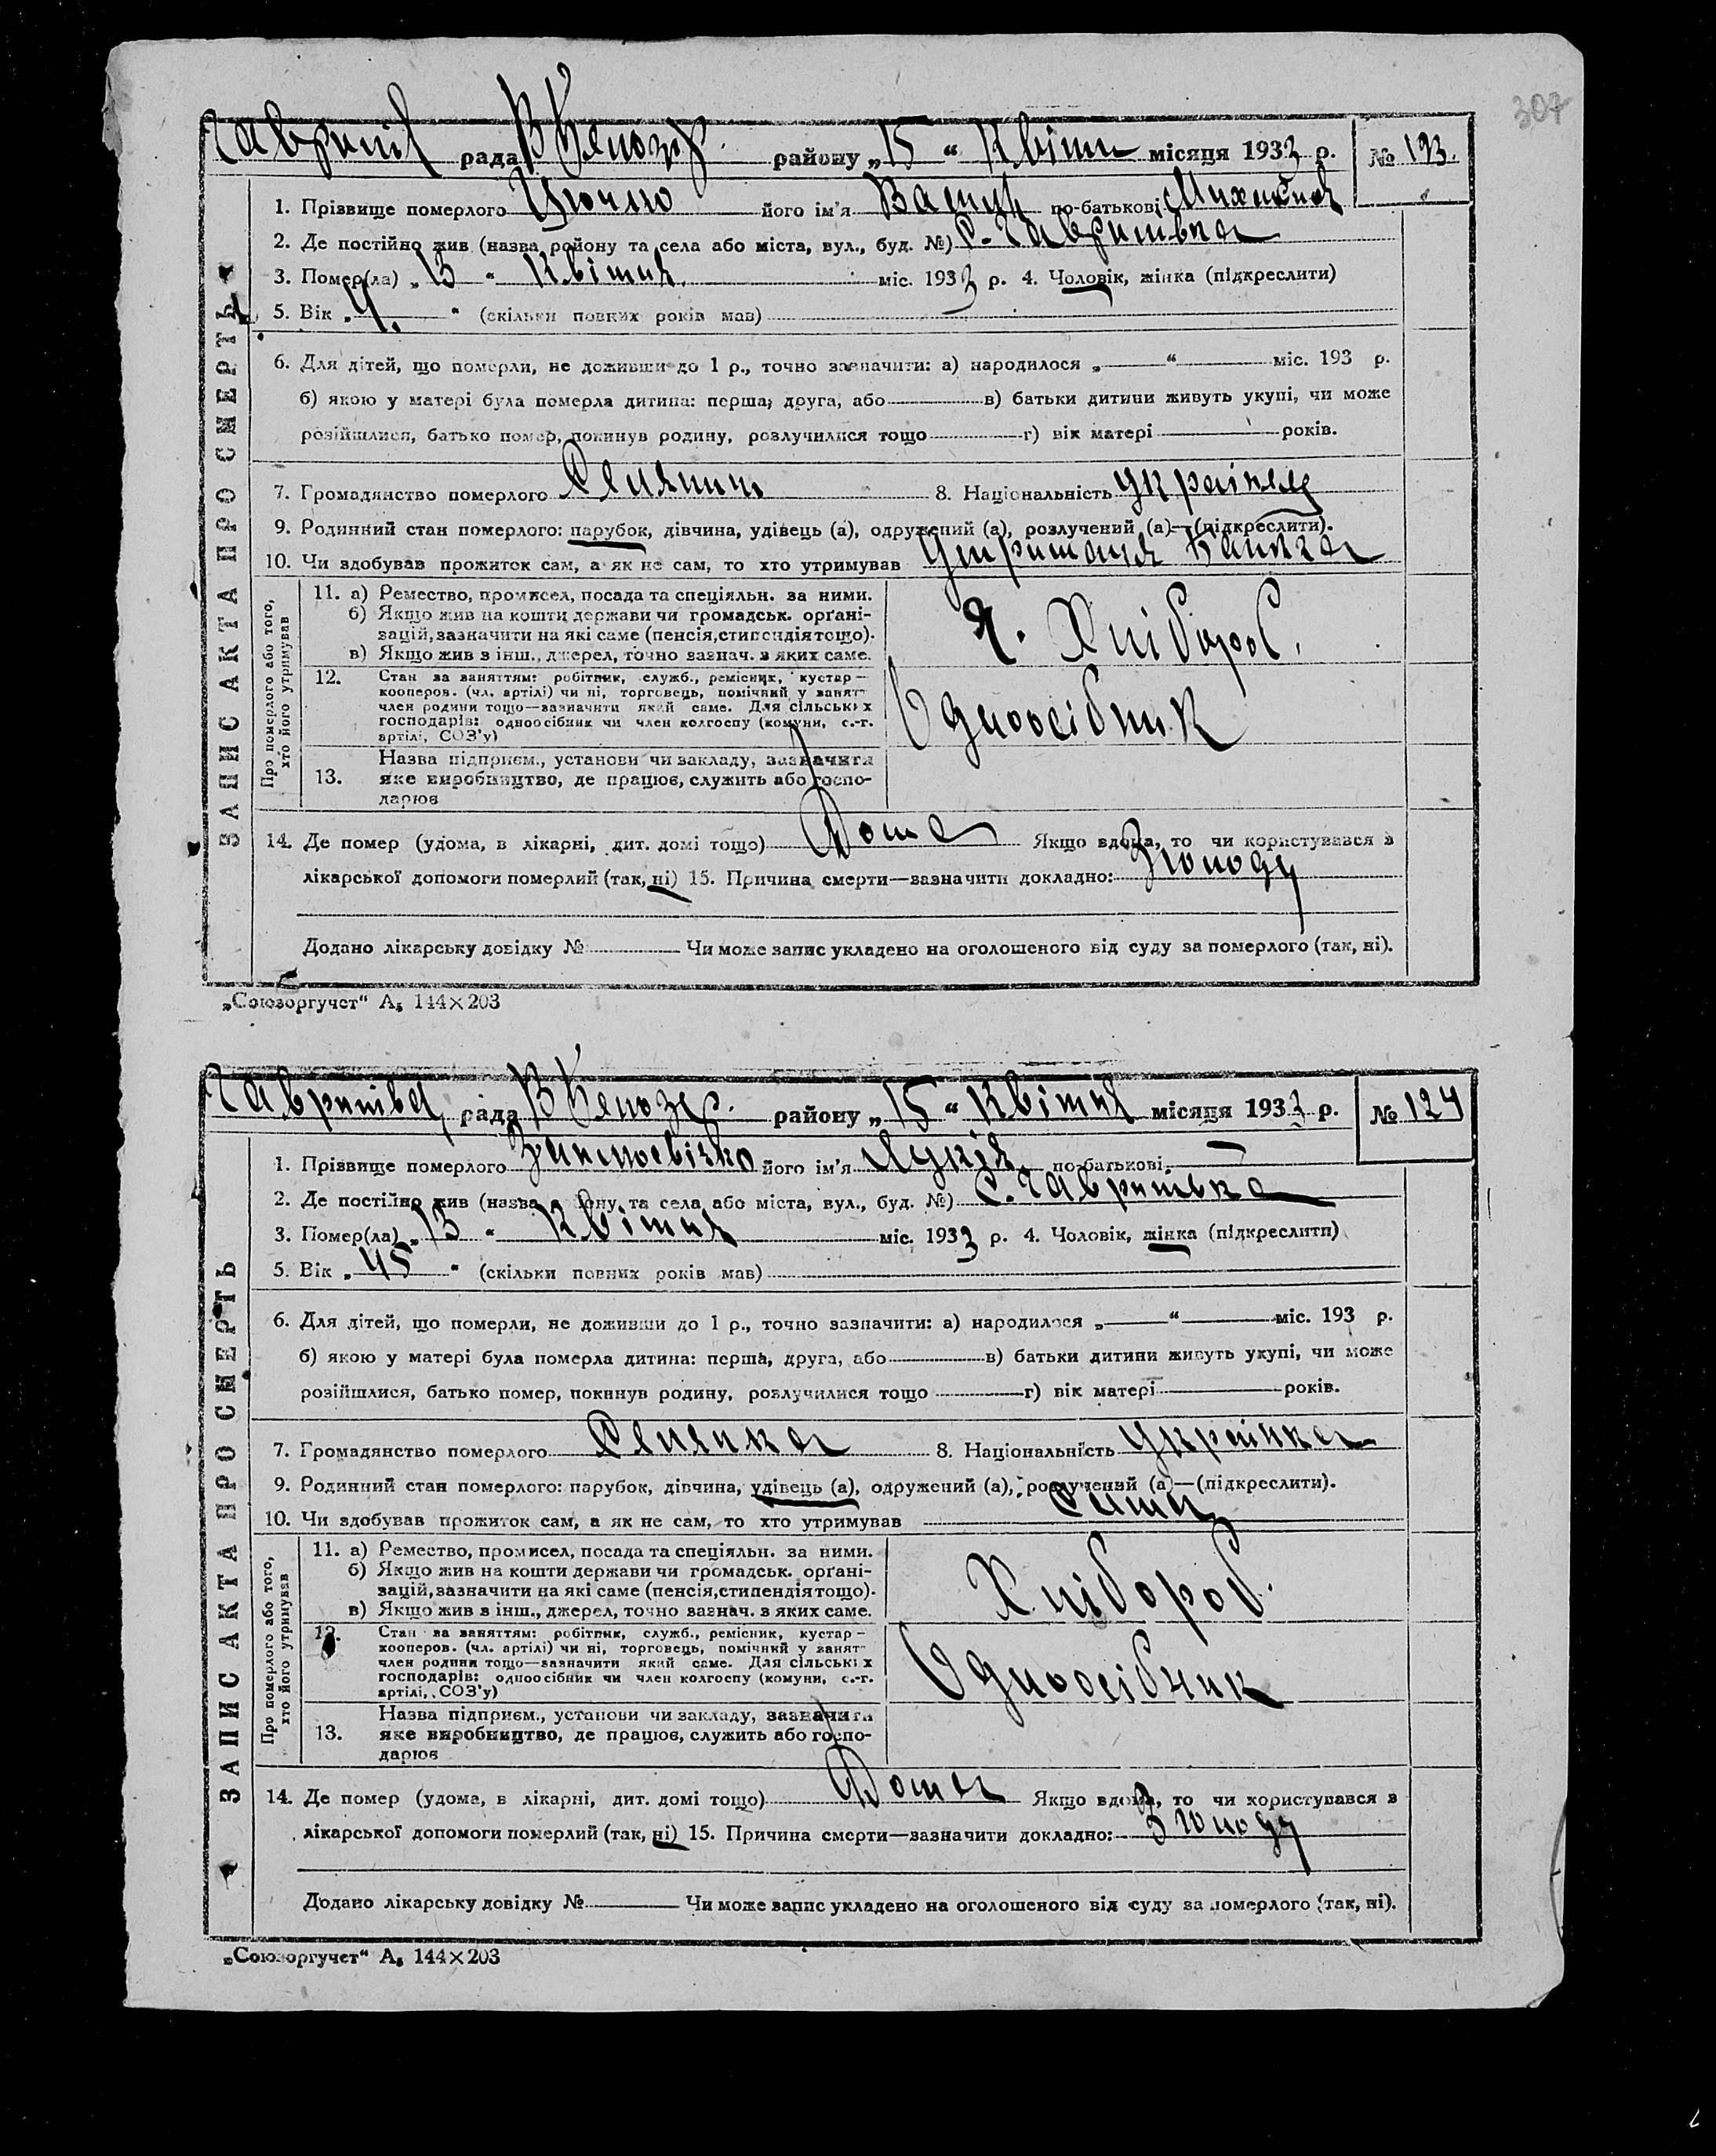 307
Гаврилів рада В Белозер. району „15“ Квітня місяця 1933 р. № 123.
ЗАПИС АКТА ПРО СМЕРТЬ
1. Прізвище померлого його ім'я по-батькові
2. Де постійно жив (назва району та села або міста, вул., буд. №) с. Гаврилівка
3. Помер(ла) „13“ Квітня міс. 1933 р. 4. Чоловік, жінка (підкреслити)
5. Вік „4.“ (скільки повних років мав)
6. Для дітей, що померли, не доживши до 1 р., точно зазначити: а) народилося „ “ міс. 193 р.
б) якою у матері була померла дитина: перша, друга, або в) батьки дитини живуть укупі, чи може
розійшлися, батько помер, покинув родину, розлучилися тощо г) вік матері років.
7. Громадянство померлого Селянин 8. Національність українец
9. Родинний стан померлого: парубок, дівчина, удівець (а), одружений (а), розлучений (а)—(підкреслити).
10. Чи здобував прожиток сам, а як не сам, то хто утримував
Про померлого або того, хто його утримував
11. а) Ремество, промисел, посада та спеціяльн. за ними.
б) Якщо жив на кошти держави чи громадськ. орґані-
зацій, зазначити на які саме (пенсія, стипендія тощо).
в) Якщо жив з інш., джерел, точно зазнач. з яких саме.
Хлібороб.
12. Стан за заняттям: робітник, служб., ремісник, кустар—
кооперов. (чл. артілі) чи ні, торговець, помічний у занят
член родини тощо—зазначити який саме. Для сільських
господарів: одноосібник чи член колгоспу (комуни, с.-г.
артілі, СОЗ'у)
Одноосібник
Назва підприєм., установи чи закладу, зазначити
13. яке виробництво, де працює, служить або госпо-
дарює
14. Де помер (удома, в лікарні, дит. домі тощо) Дома Якщо вдома, то чи користувався з
лікарської допомоги померлий (так, ні) 15. Причина смерти—зазначити докладно: З голоду
Додано лікарську довідку № Чи може запис укладено на оголошеного від суду за померлого (так, ні).
„Союзоргучет“ А5 144×203
Гаврилівка рада В Белозер. району „15“ Квітня місяця 1933 р. № 124
ЗАПИС АКТА ПРО СМЕРТЬ
1. Прізвище померлого його ім'я по-батькові —
2. Де постійно жив (назва району та села або міста, вул., буд. №) С. Гаврилівка
3. Помер(ла) „13“ Квітня міс. 1933 р. 4. Чоловік, жінка (підкреслити)
5. Вік „45“ (скільки повних років мав)
6. Для дітей, що померли, не доживши до 1 р., точно зазначити: а) народилося „ “ міс. 193 р.
б) якою у матері була померла дитина: перша, друга, або в) батьки дитини живуть укупі, чи може
розійшлися, батько помер, покинув родину, розлучилися тощо г) вік матері років.
7. Громадянство померлого Селянка 8. Національність Українка
9. Родинний стан померлого: парубок, дівчина, удівець (а), одружений (а), розлучений (а)—(підкреслити).
10. Чи здобував прожиток сам, а як не сам, то хто утримував Сама
Про померлого або того, хто його утримував
11. а) Ремество, промисел, посада та спеціяльн. за ними.
б) Якщо жив на кошти держави чи громадськ. орґані-
зацій, зазначити на які саме (пенсія, стипендія тощо).
в) Якщо жив з інш., джерел, точно зазнач. з яких саме.
Хлібороб.
12. Стан за заняттям: робітник, служб., ремісник, кустар—
кооперов. (чл. артілі) чи ні, торговець, помічний у занят
член родини тощо—зазначити який саме. Для сільських
господарів: одноосібник чи член колгоспу (комуни, с.-г.
артілі, СОЗ'у)
Одноосібник
Назва підприєм., установи чи закладу, зазначити
13. яке виробництво, де працює, служить або госпо-
дарює
14. Де помер (удома, в лікарні, дит. домі тощо) Дома Якщо вдома, то чи користувався з
лікарської допомоги померлий (так, ні) 15. Причина смерти—зазначити докладно: З голоду
Додано лікарську довідку № Чи може запис укладено на оголошеного від суду за померлого (так, ні).
„Союзоргучет“ А5 144×203